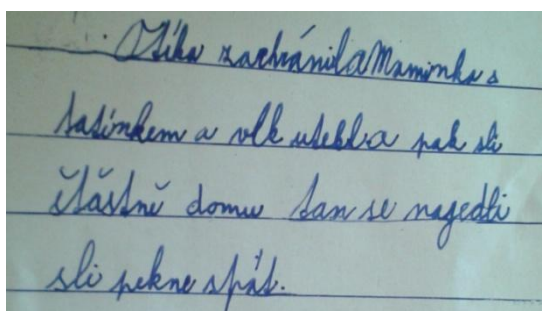 Otíka zachránila Maminka s
tatínkem a vlk utekl a pak sli
štăstně domu tan se najedli
sli pekne spát.